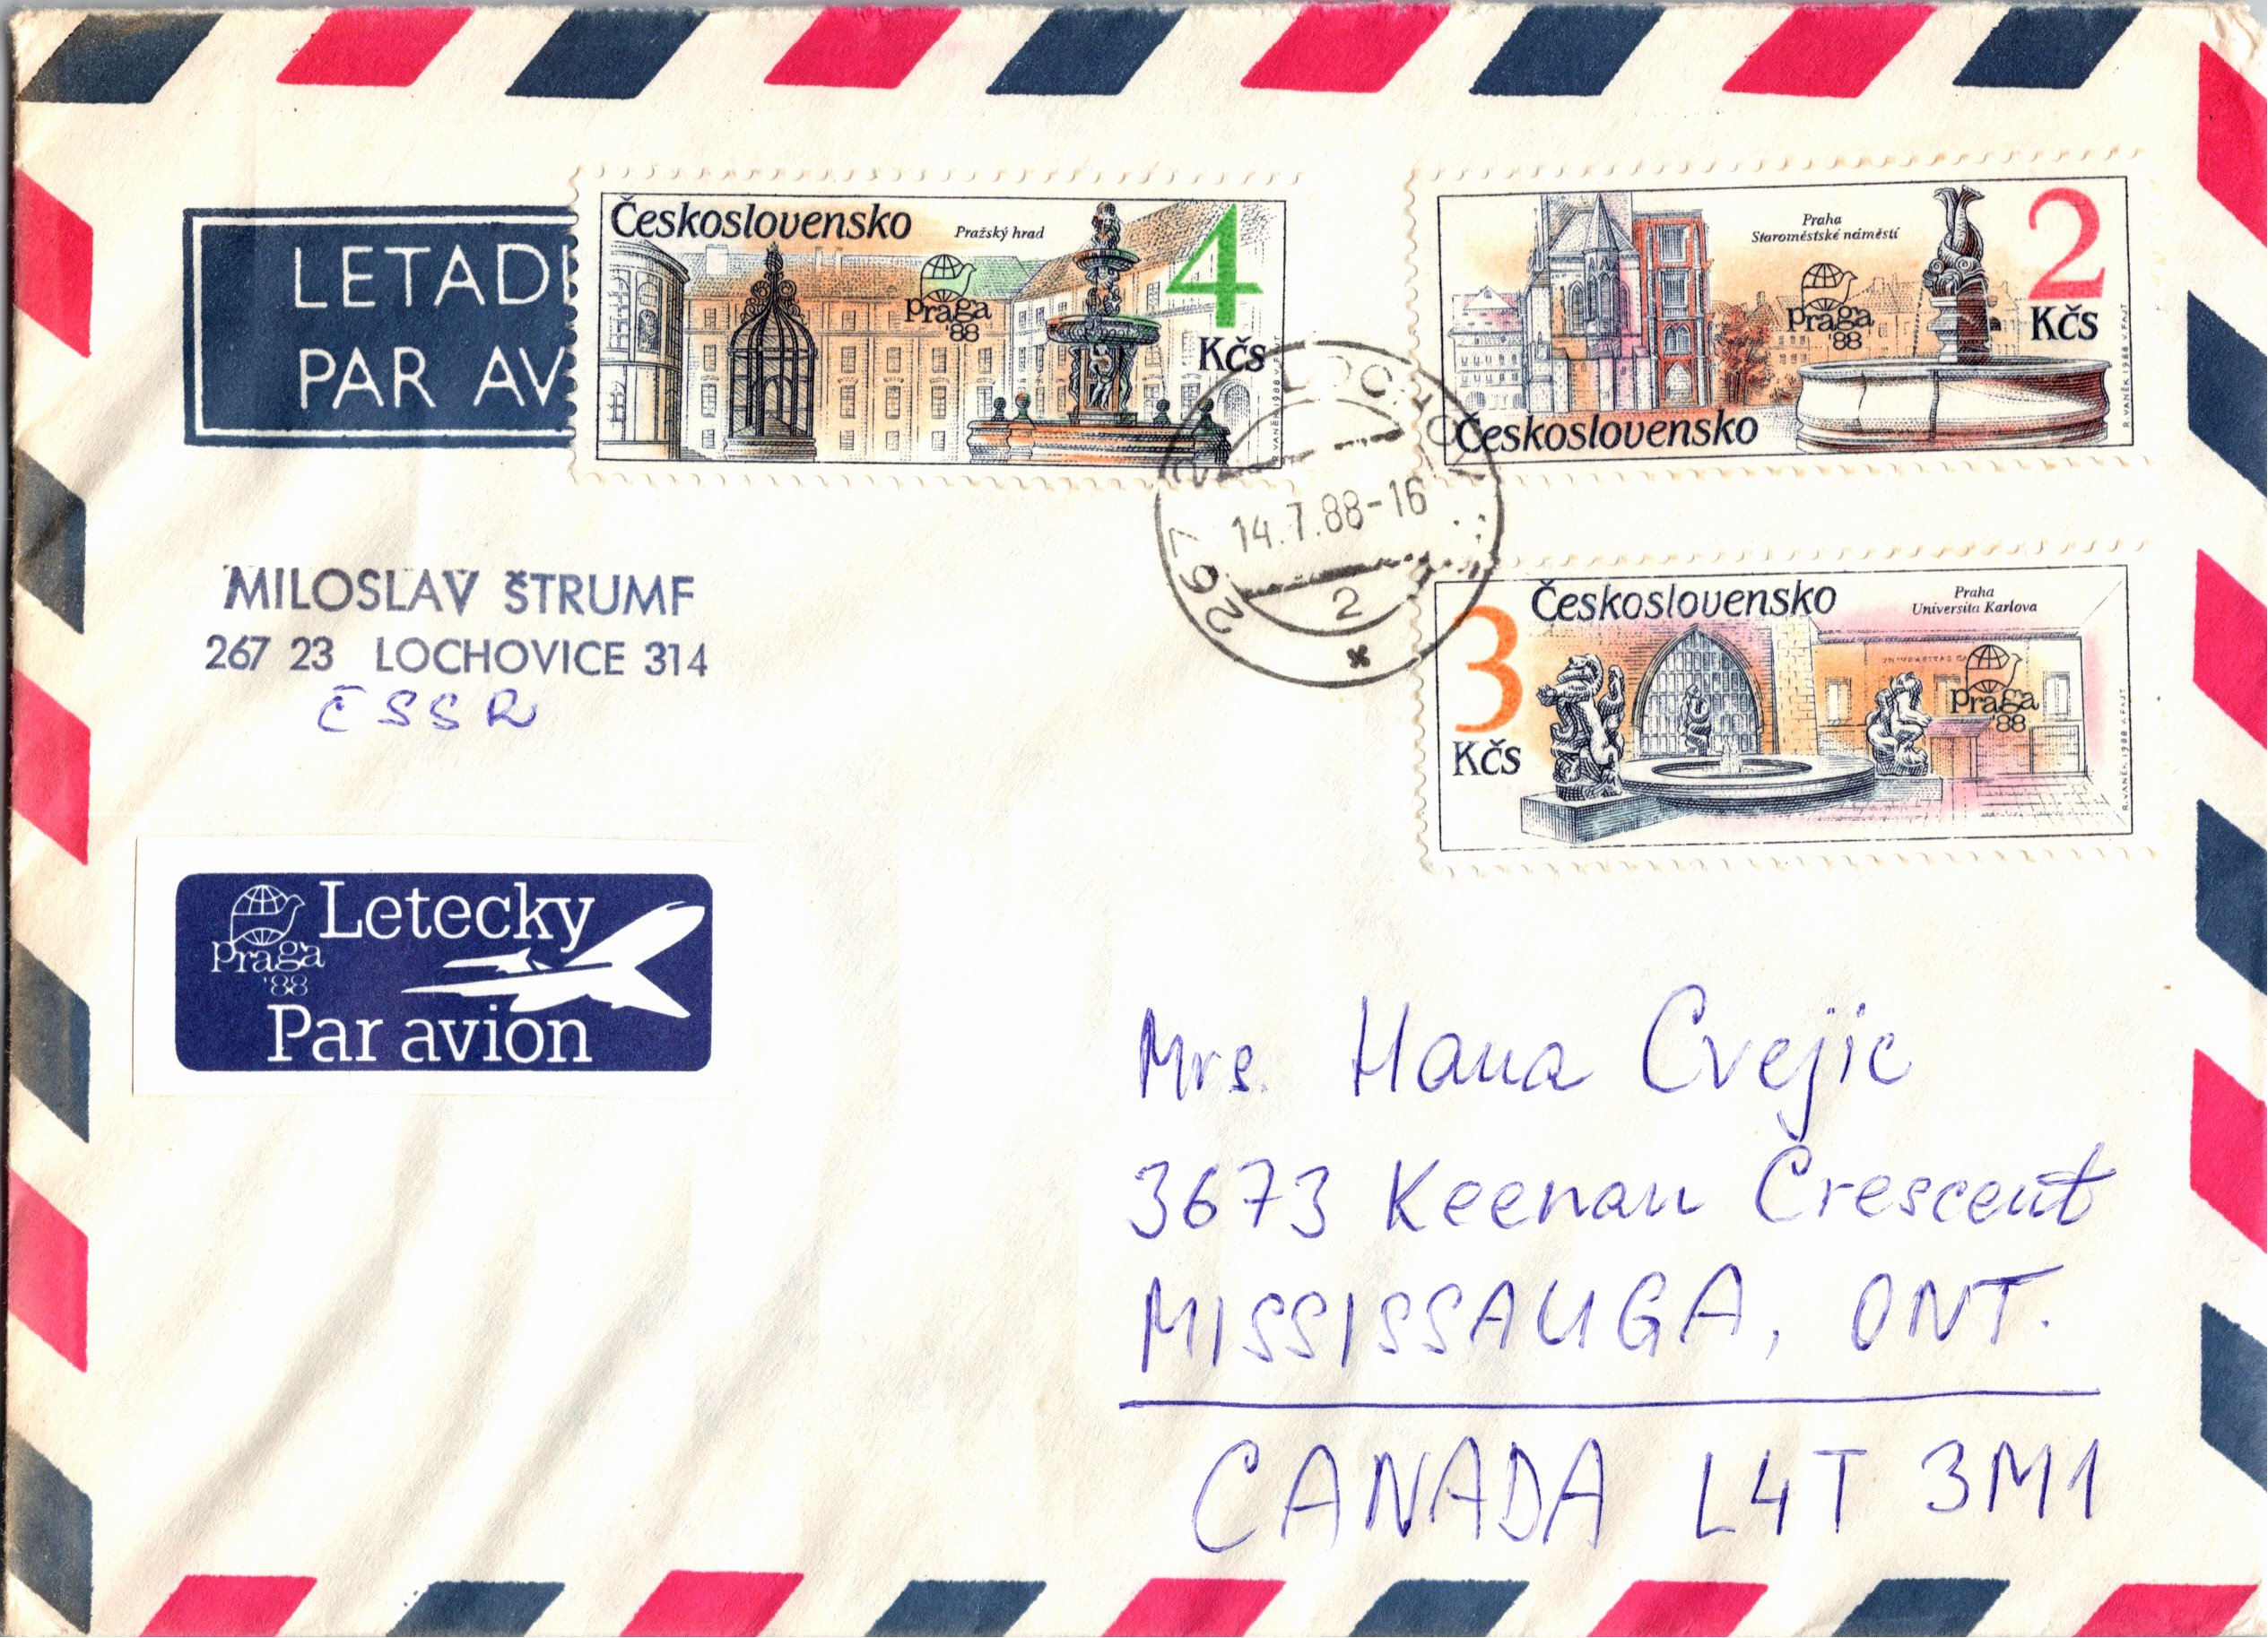 LETAD
PAR AV
Československo
Pražský hrad
4
Kčs
praga
'88
R. VANĚK 1988 V. FAJT
Praha
Staroměstské náměstí
2
Kčs
praga
'88
Československo
R. VANĚK 1988 V. FAJT
267 23
14.7.88-16
2
MILOSLAV ŠTRUMF
267 23 LOCHOVICE 314
ČSSR
3
Kčs
Československo
Praha
Universita Karlova
praga
'88
R. VANĚK 1988 V. FAJT
praga
'88
Letecky
Par avion
Mrs. Hana Cvejic
3673 Keenan Crescent
MISSISSAUGA, ONT.
CANADA L4T 3M1